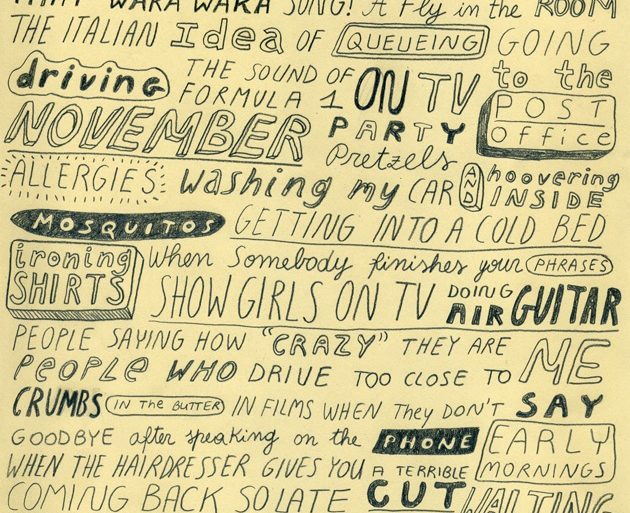 THAT WAKA WAKA SONG! A fly in the ROOM
THE ITALIAN Idea OF QUEUEING GOING
driving THE SOUND OF FORMULA 1 ON TV to the
POST office
NOVEMBER PARTY Pretzels
ALLERGIES washing my CAR AND hoovering INSIDE
MOSQUITOS GETTING INTO A COLD BED
ironing SHIRTS When Somebody finishes your PHRASES
SHOWGIRLS ON TV DOING AIR GUITAR
PEOPLE SAYING HOW "CRAZY" THEY ARE
PEOPLE WHO DRIVE TOO CLOSE TO ME
CRUMBS IN THE BUTTER IN FILMS WHEN They DON'T SAY
GOODBYE after speaking on the PHONE EARLY MORNINGS
WHEN THE HAIRDRESSER GIVES YOU A TERRIBLE CUT
COMING BACK SO LATE WAITING